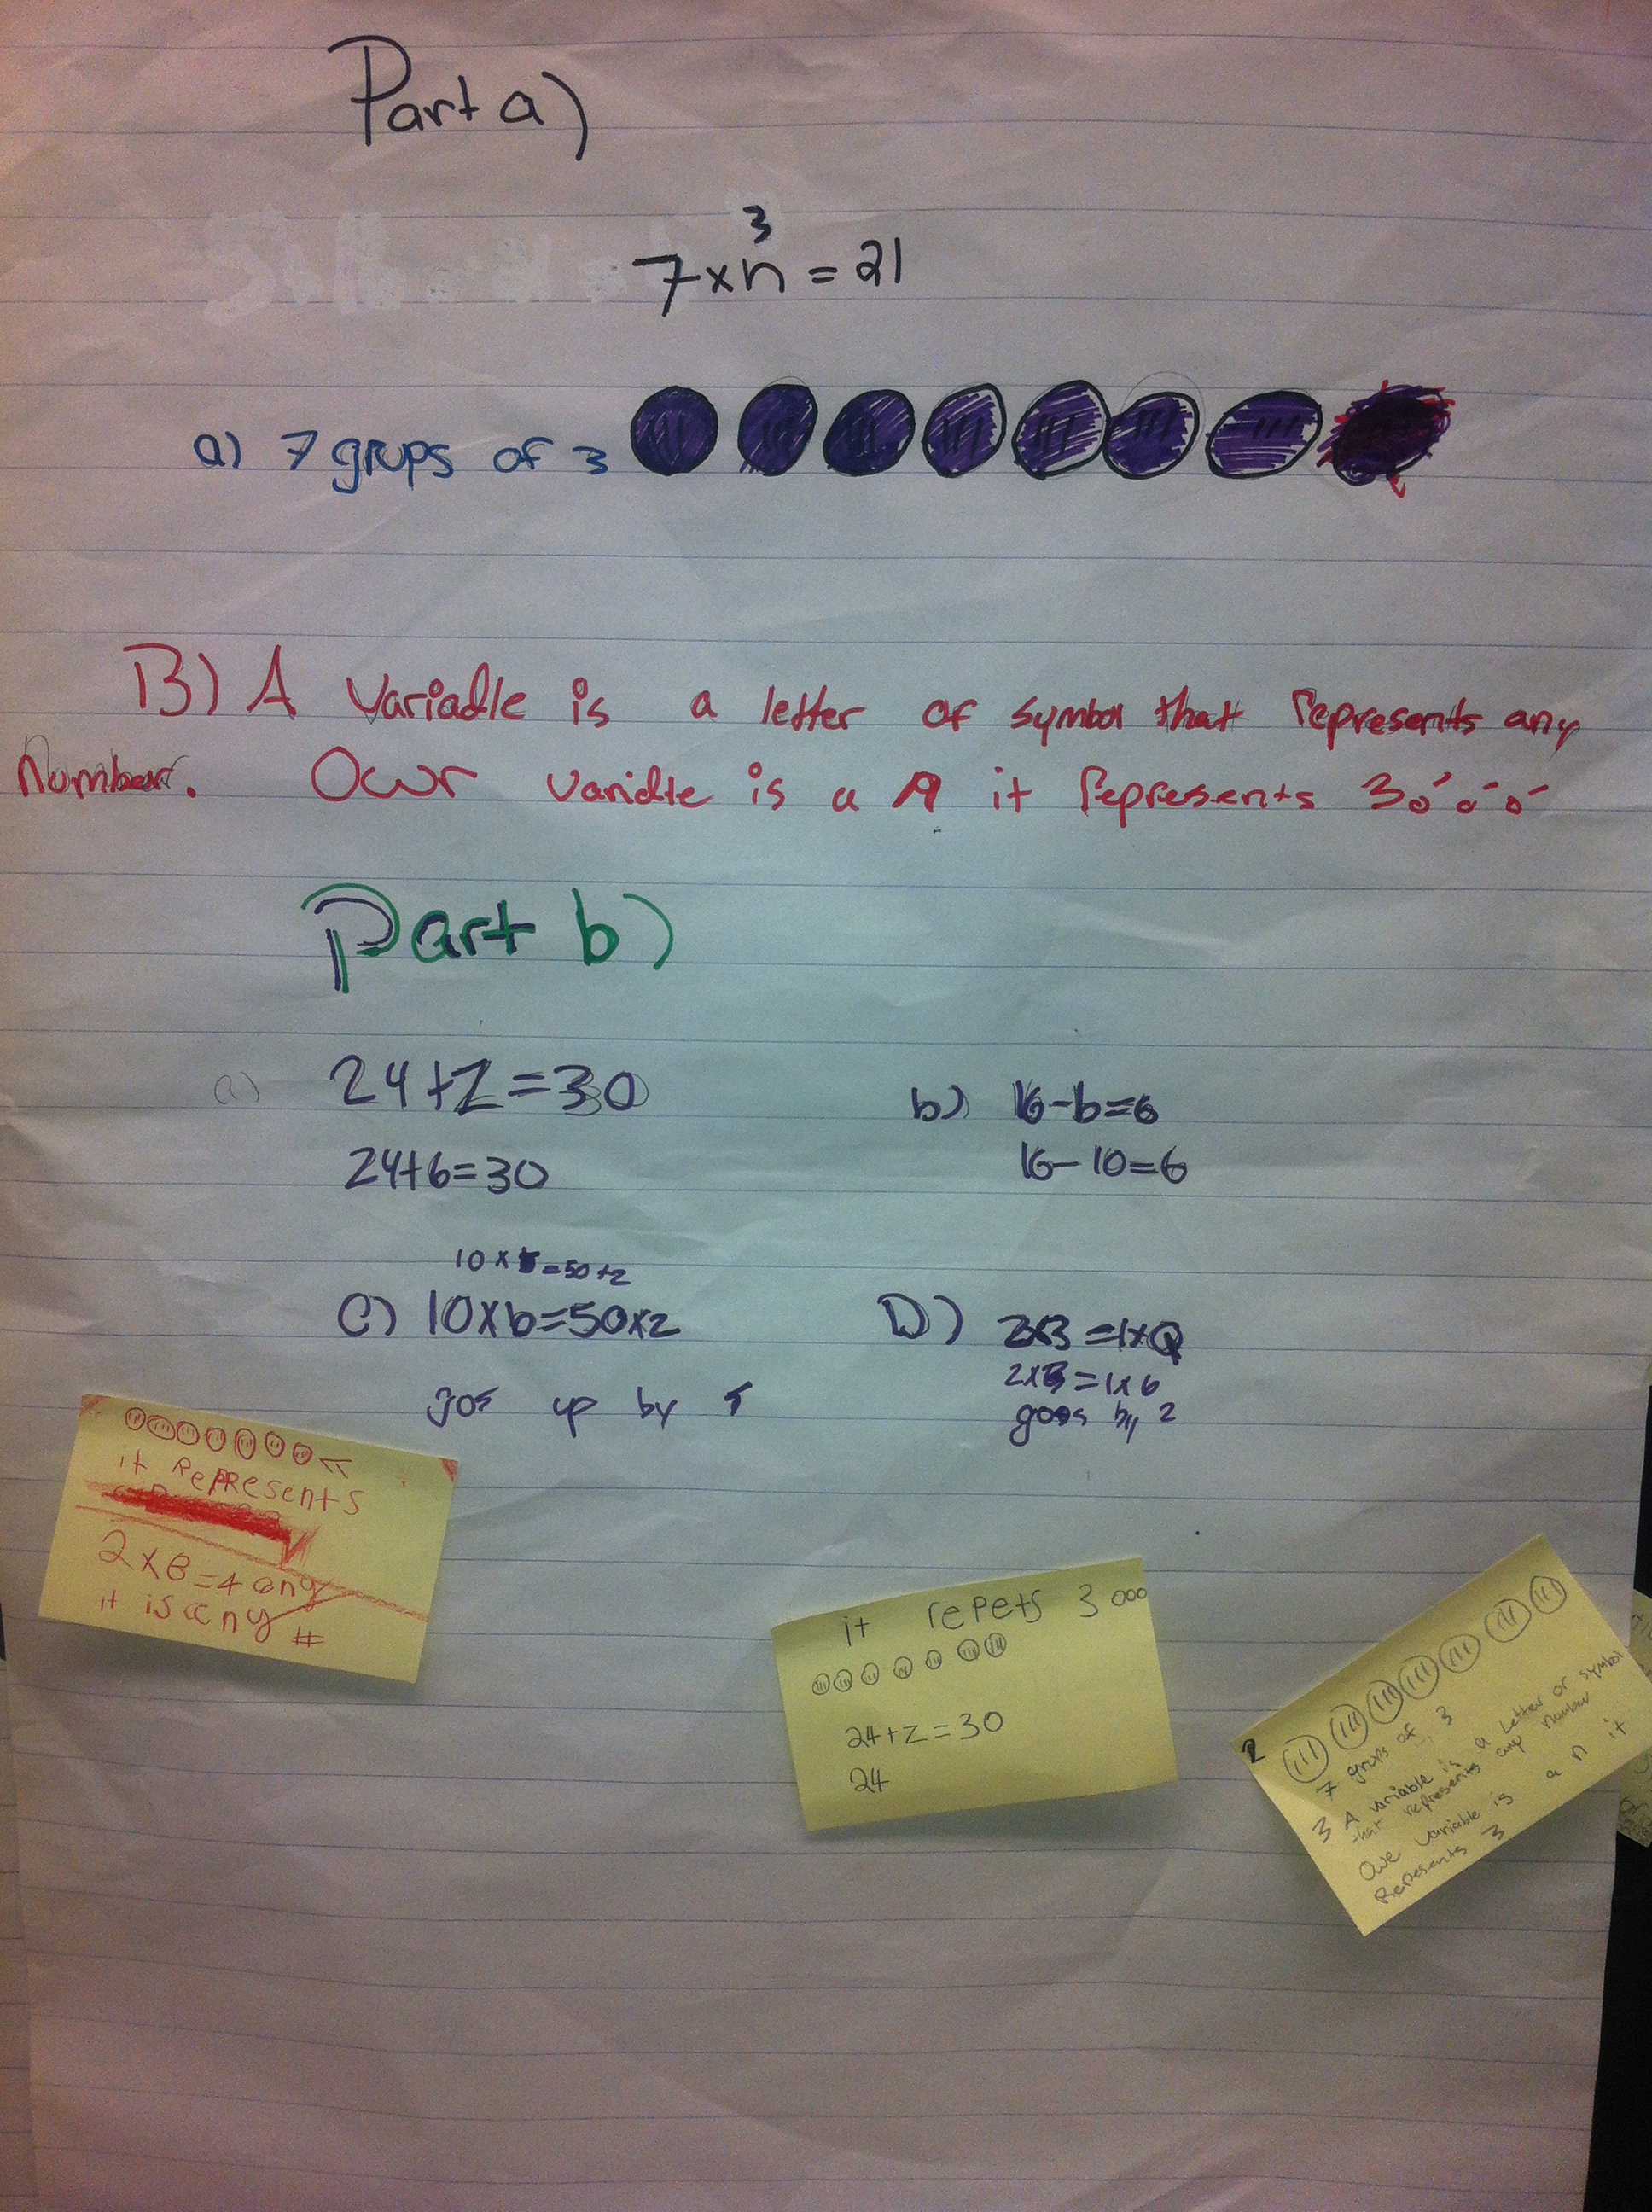 Part a)
3
7xn=21
a) 7 grups of 3
B) A Variable is a letter of symbol that represents any
number. Owr varible is a n it represents 3
Part b)
a) 24+Z=30
24+6=30
b) 16-b=6
16-10=6
10x5=50+z
C) 10xb=50xz
gos up by 5
D) 2x3=1xQ
2x3=1x6
goos by 2
it RePResents
2x8=4 any
it is any #
it repets 3 000
24+z=30
24
2
7 grups of 3
3 A variable is a Letter or symbol
that represents any number
Owe variable is a n it
Represents 3